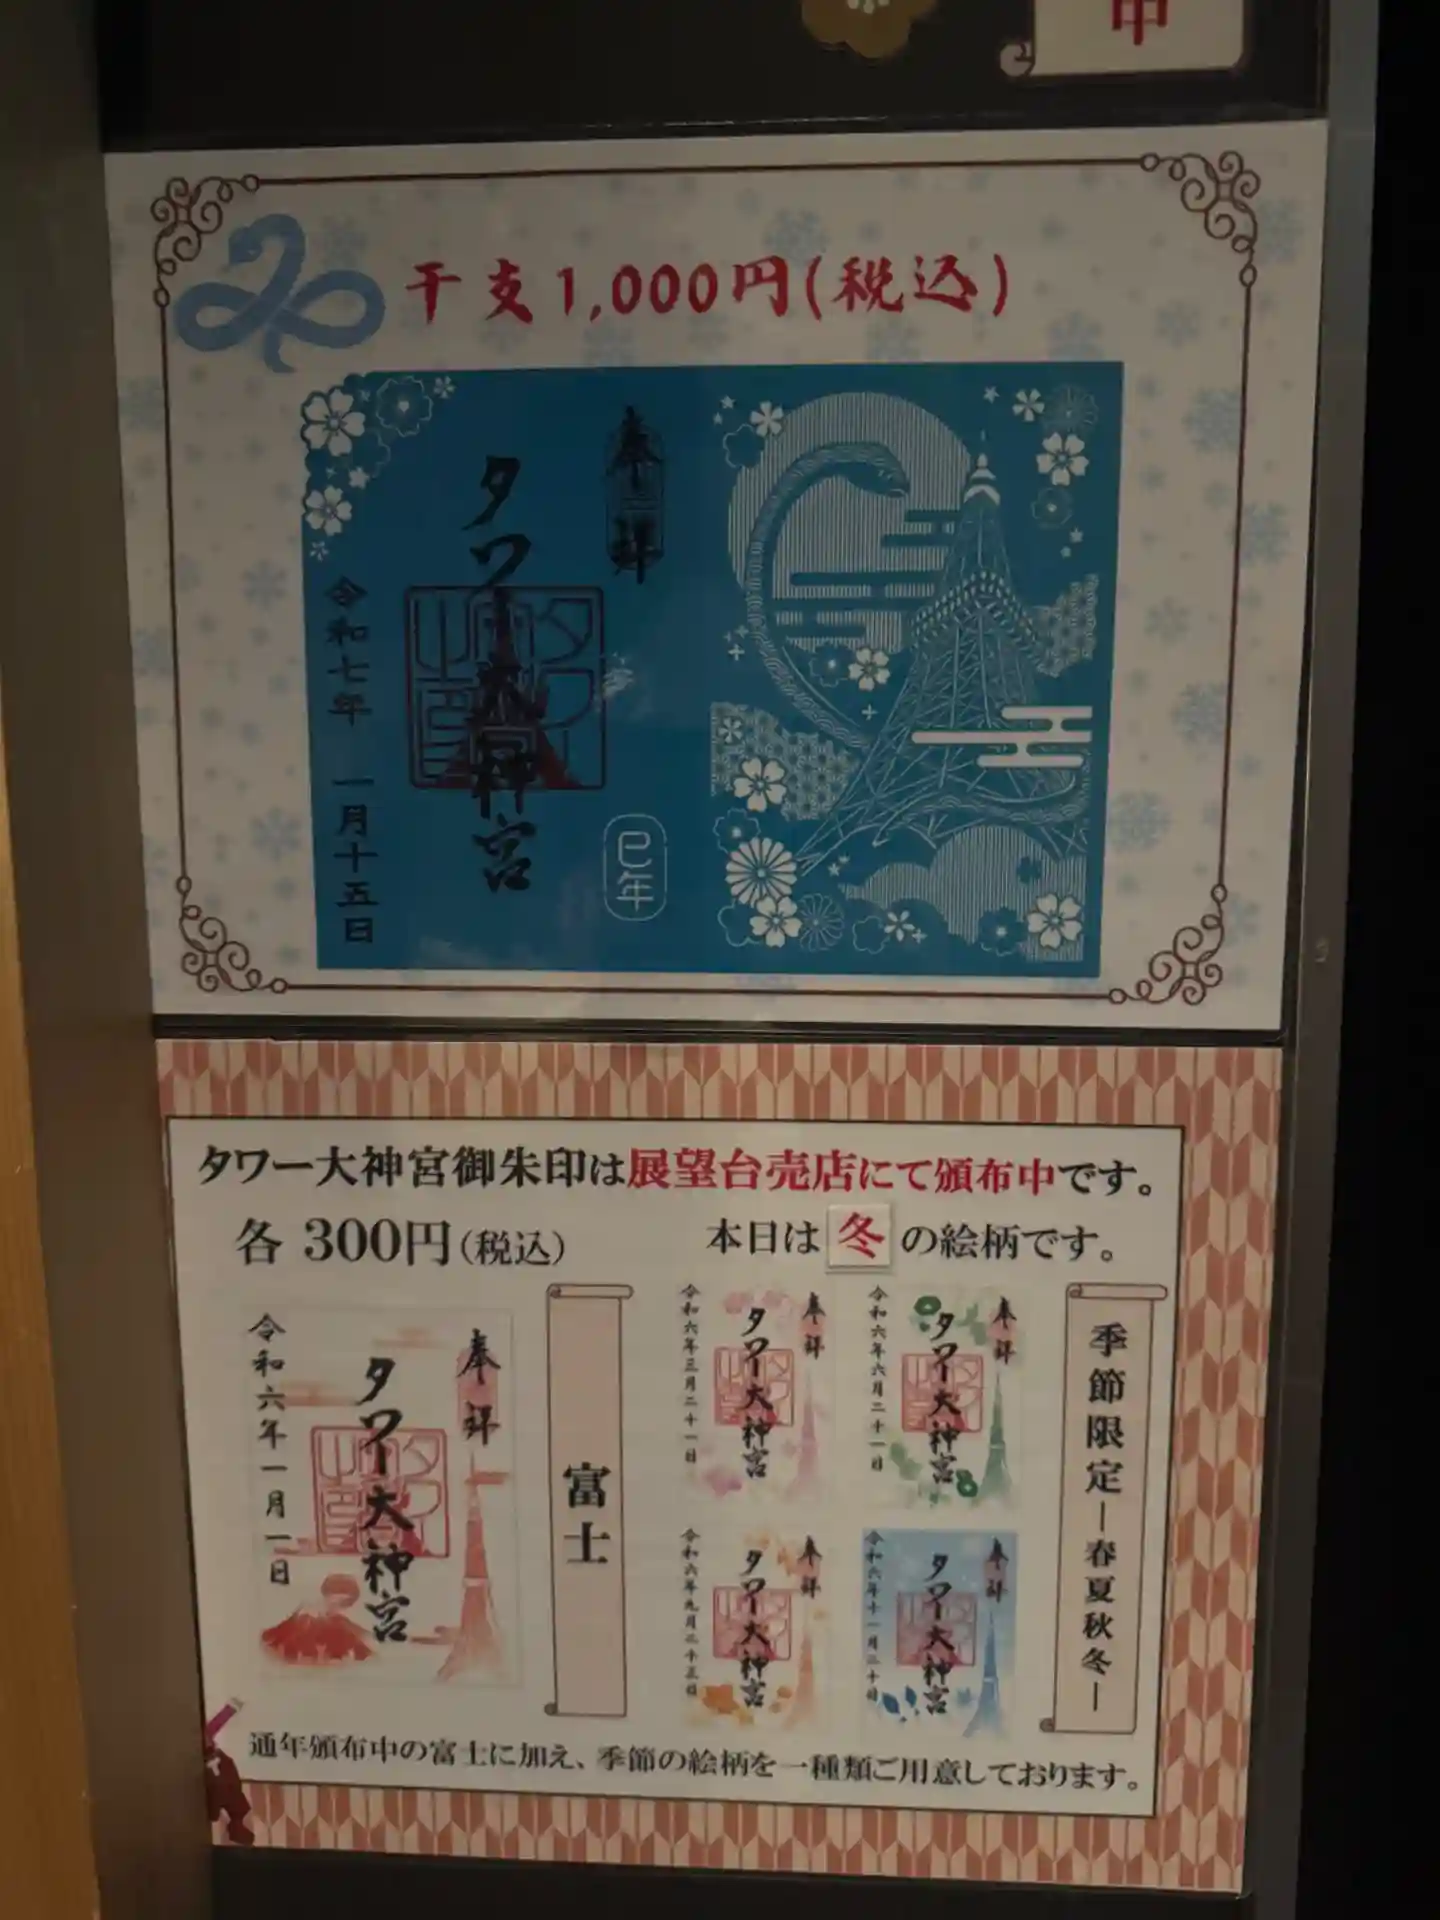 中
干支1,000円(税込)
奉拝
タワー大神宮
令和七年 一月十五日
巳年
タワー大神宮御朱印は展望台売店にて頒布中です。
各 300円(税込)
本日は 冬 の絵柄です。
奉拝
タワー大神宮
令和六年一月一日
富士
奉拝
タワー大神宮
令和六年三月二十一日
奉拝
タワー大神宮
令和六年六月二十一日
奉拝
タワー大神宮
奉拝
タワー大神宮
季節限定―春夏秋冬―
通年頒布中の富士に加え、季節の絵柄を一種類ご用意しております。